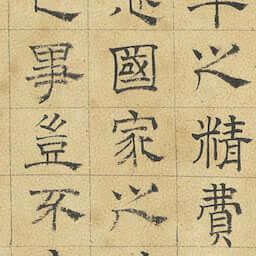 之精費
國家之
事豈不